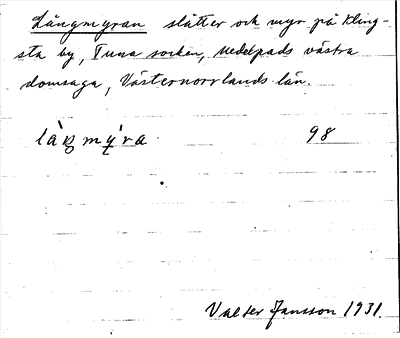 Långmyran slåtter och myr på Kling-
sta by, Tuna socken, Medelpads västra
domsaga, Västernorrlands län.
låŋmy̨ra 98
Valter Jansson 1931.